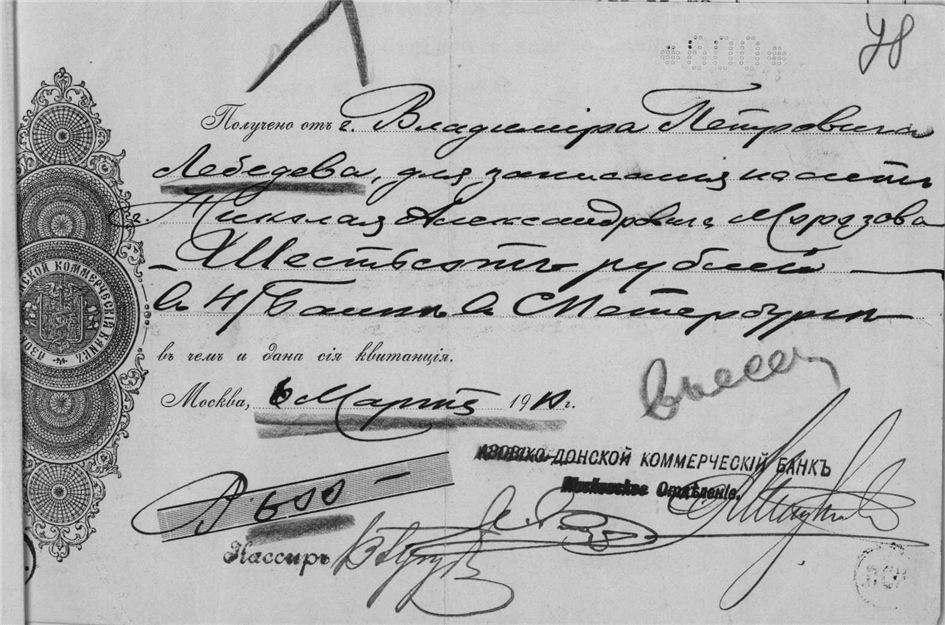 78
Получено отъ г. Владиміра Петровича
Лебедева, для записанія на счетъ
г. Николая Александровича Морозова
Шестьсотъ рублей
въ Н/Банкъ въ СПетербургѣ
въ чемъ и дана сія квитанція.
Москва, 6 Марта 1910 г.
АЗОВСКО-ДОНСКОЙ КОММЕРЧЕСКІЙ БАНКЪ
Московское Отдѣленіе.
Р 600 -
Кассиръ
КОММЕРЧЕСКІЙ БАНКЪ